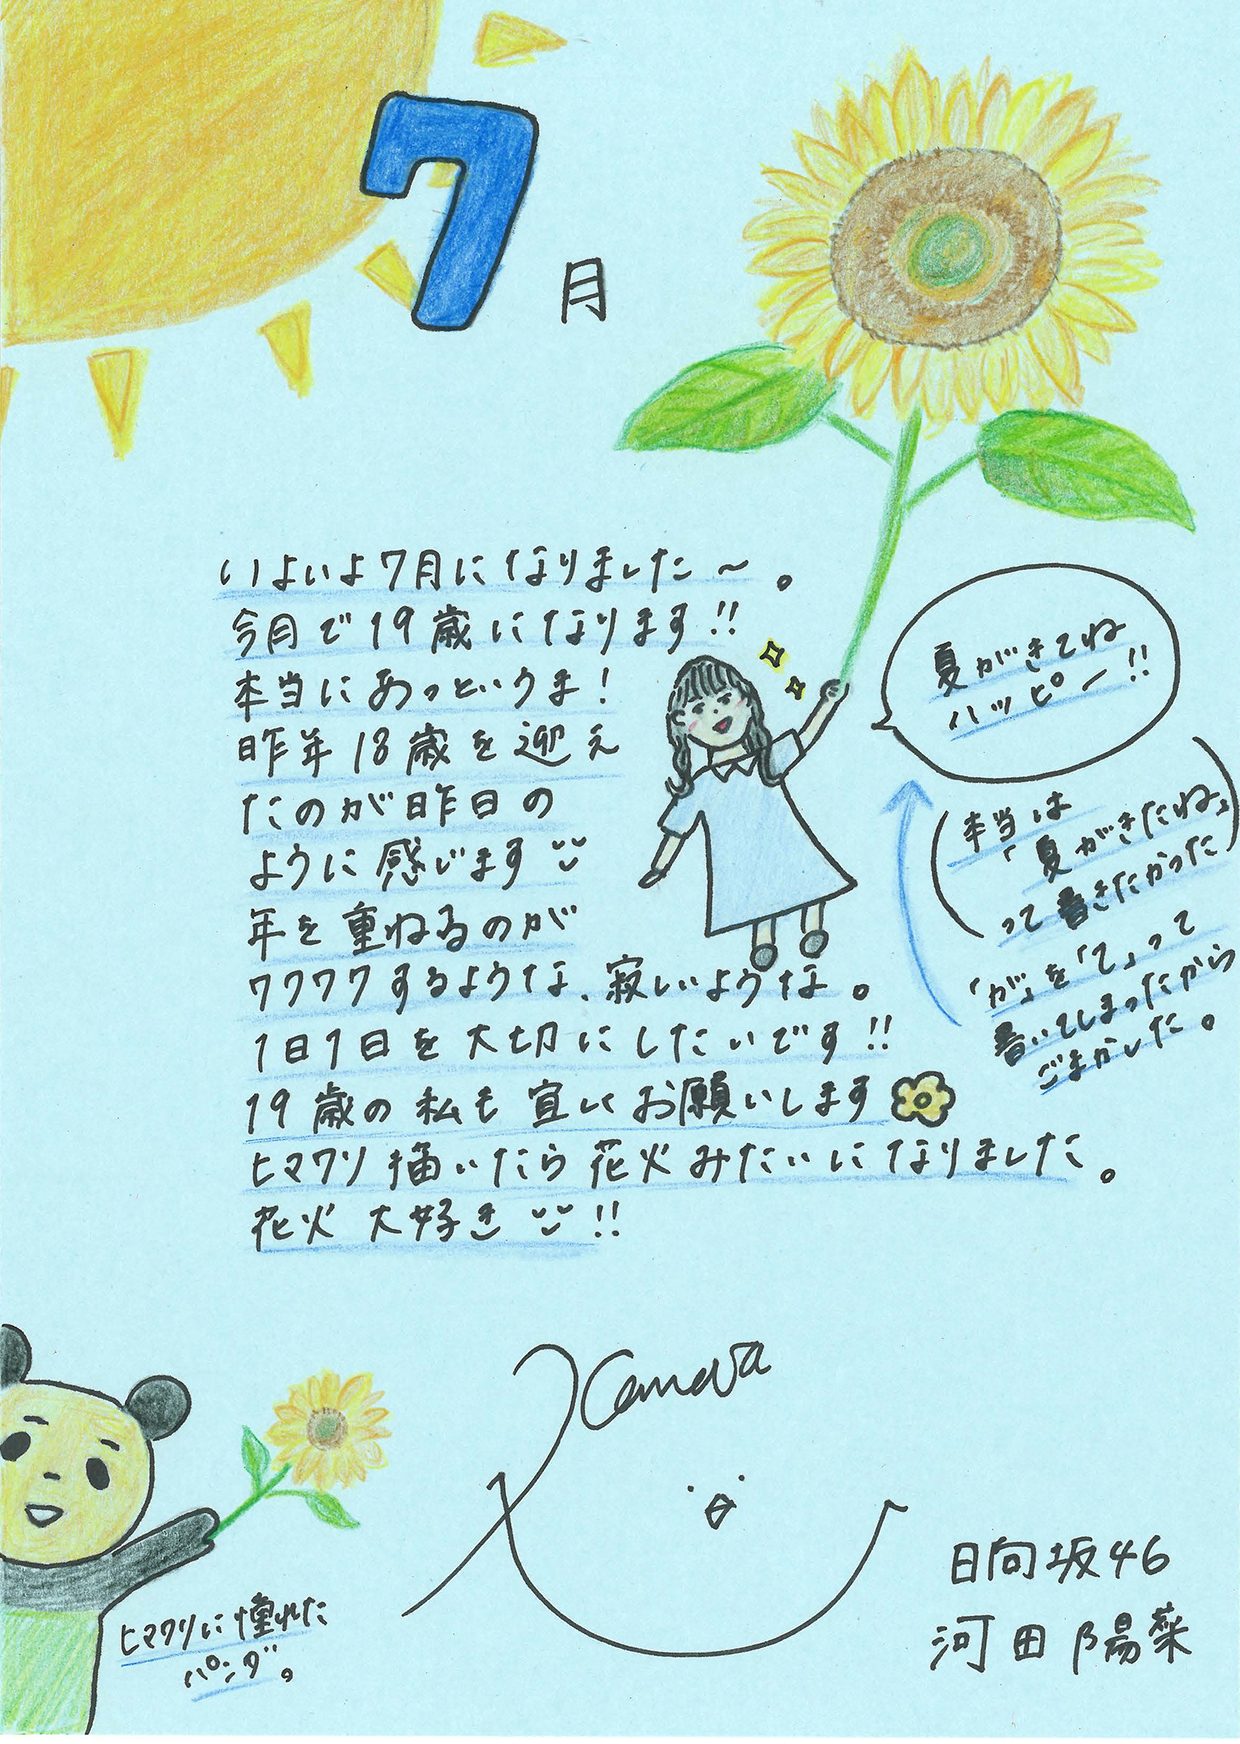 7月
いよいよ7月になりました〜。
今月で19歳になります!!
本当にあっというま!
昨年18歳を迎え
たのが昨日の
ように感じます
年を重ねるのが
ワクワクするような、寂しいような。
1日1日を大切にしたいです!!
19歳の私も宜しくお願いします
ヒマワリ描いたら花火みたいになりました。
花火大好き!!
夏がきてね
ハッピー!!
(本当は
「夏がきたね」
って書きたかった)
「が」を「て」って
書いてしまったから
ごまかした。
ヒマワリに憧れた
パンダ。
日向坂46
河田陽菜